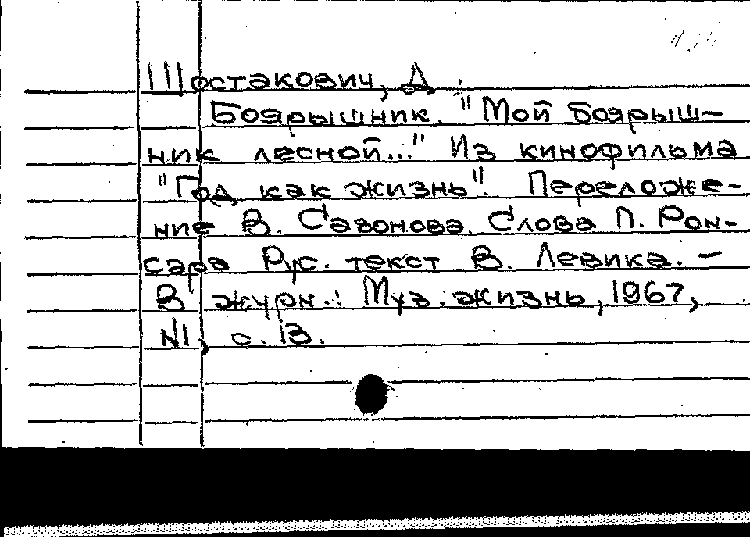 Шостакович, Д.
Боярышник. "Мой боярыш-
ник лесной..." Из кинофильма
"Год как жизнь". Переложе-
ние В. Сазонова. Слова П. Рон-
сара Рус. текст В. Левика. –
В журн.: Муз. жизнь, 1967,
№1, с. 13.